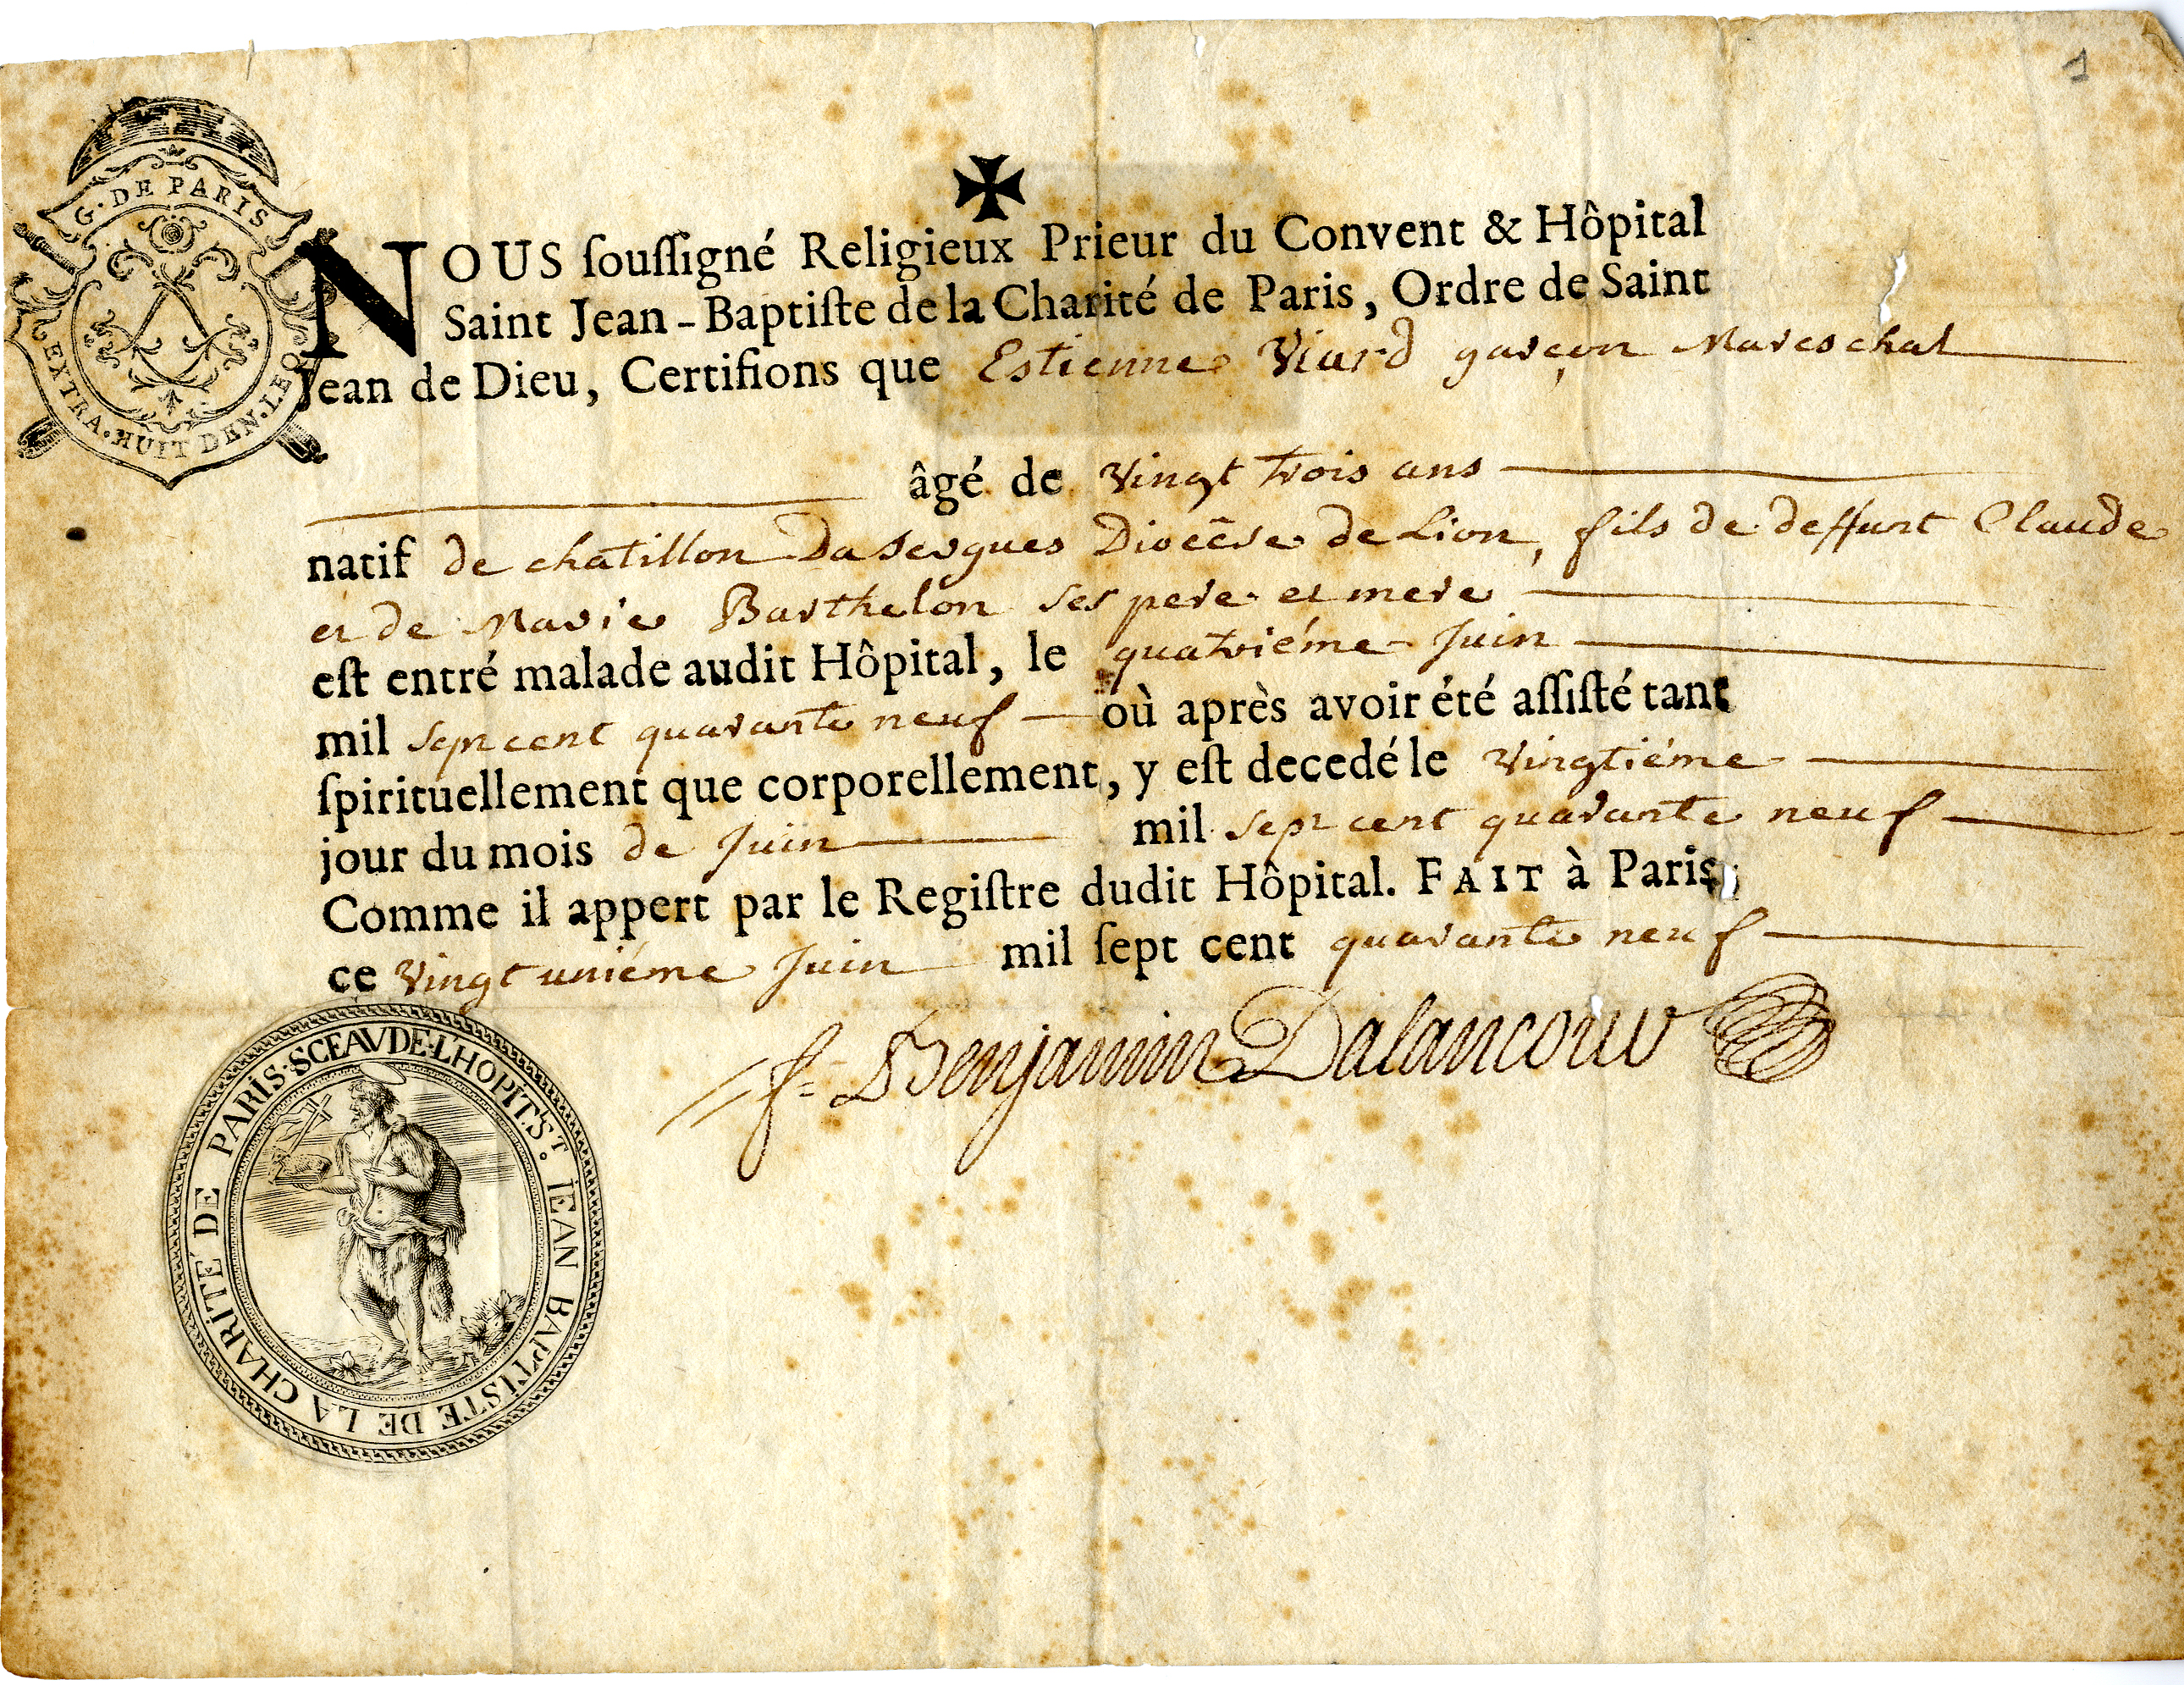 1
G. DE PARIS
EXTRA. HUIT DEN. LE
✠
NOUS souſſigné Religieux Prieur du Convent & Hôpital
Saint Jean-Baptiſte de la Charité de Paris, Ordre de Saint
Jean de Dieu, Certifions que Estienne Viard garçon Mareschal
âgé de Vingt trois ans
natif de chatillon Dasergues Diocêse de Lion, fils de deffunt Claude
et de Marie Barthelon ses pere et mere
eſt entré malade audit Hôpital, le quatriéme Juin
mil sept cent quarante neuf où après avoir été aſſiſté tant
ſpirituellement que corporellement, y eſt decedé le Vingtiéme
jour du mois de Juin mil sept cent quarante neuf
Comme il appert par le Regiſtre dudit Hôpital. FAIT à Paris,
ce Vingt uniéme Juin mil ſept cent quarante neuf
f= Benjamin Dalancour
SCEAV DE L'HOPIT. ST. IEAN BAPTISTE DE LA CHARITÉ DE PARIS